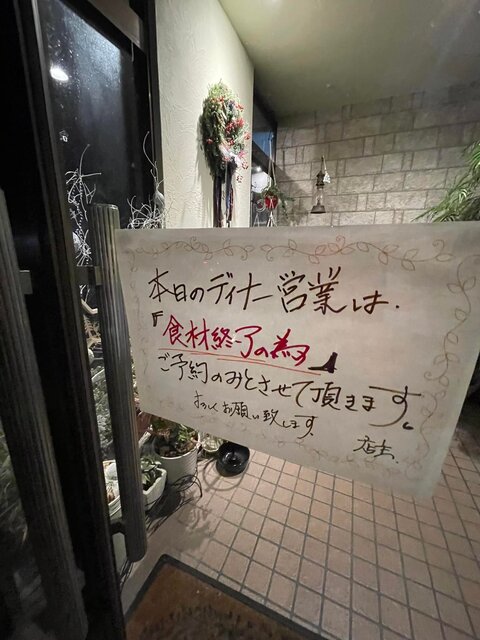 本日のディナー営業は、
『食材終了の為』
ご予約のみとさせて頂きます。
よろしくお願い致します。
店主